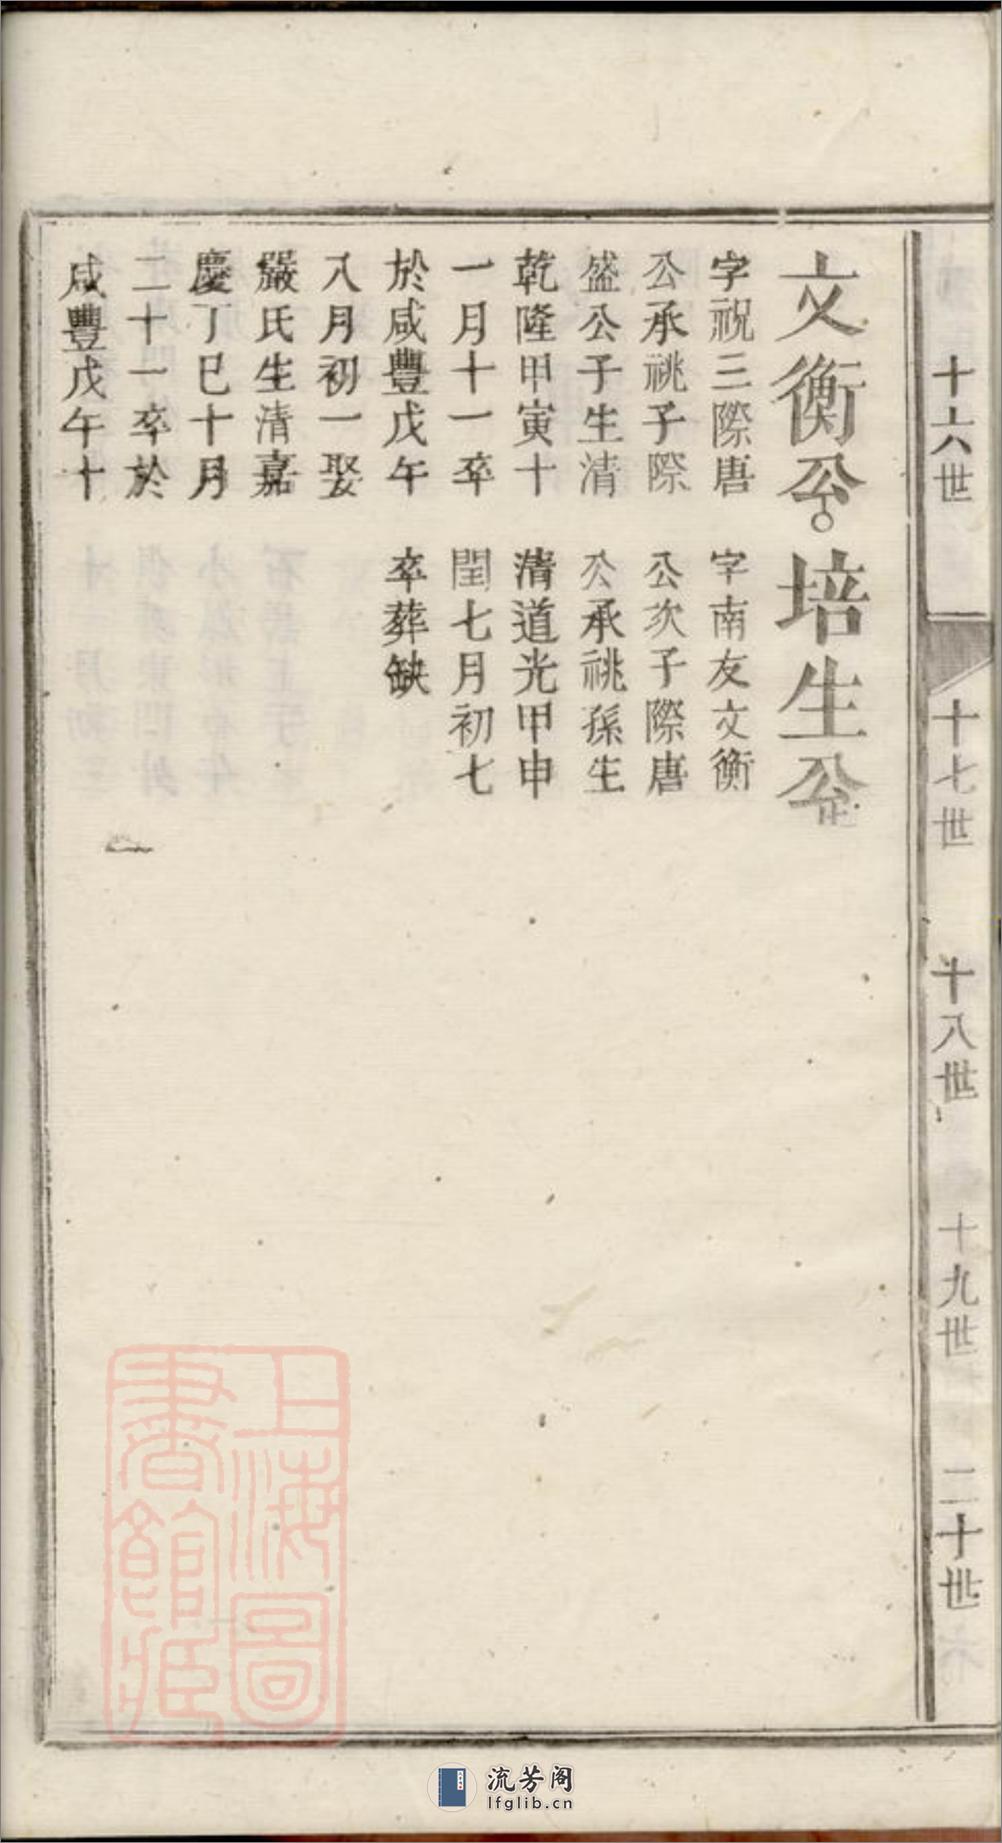 十六世
十七世
十八世
十九世
二十世
文衡公
字祝三際唐
公承祧子際
盛公子生清
乾隆甲寅十
一月十一卒
於咸豐戊午
八月初一娶
嚴氏生清嘉
慶丁巳十月
二十一卒於
咸豐戊午十
培生公
字南友文衡
公次子際唐
公承祧孫生
清道光甲申
閏七月初七
卒葬缺
上海圖
書館藏
流芳阁
lfglib.cn